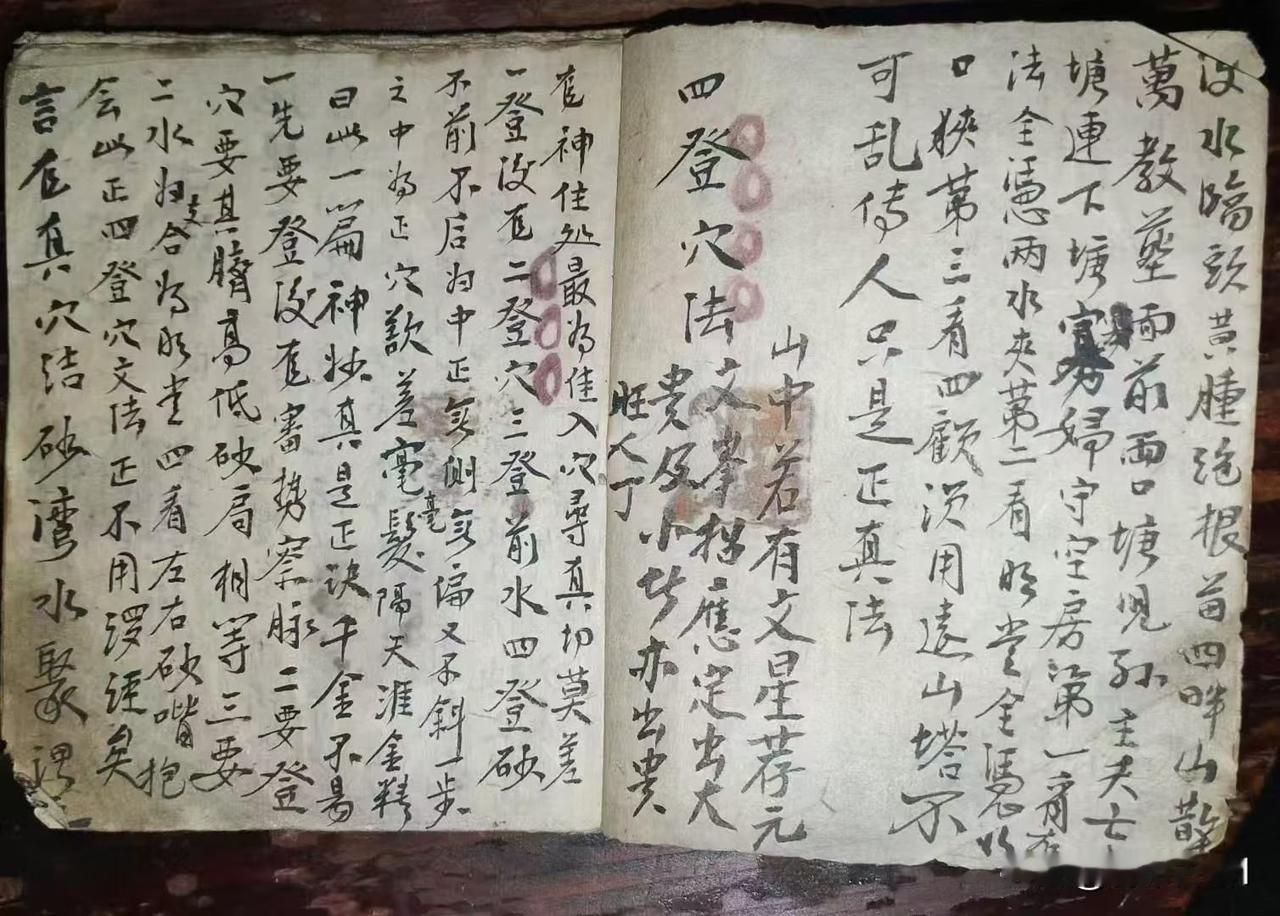 沒水臨頭黃腫絕根苗四畔山散
萬教塟面前兩口塘児孙主夫亡
塘連下塘寡婦守空房第一有在
法全憑兩水夾苐二看明堂全憑
口狹苐三看四顧湏用遠山塔不
可乱傳人只是正真法
四登穴法
山中若有文星荐元
文峯拱應定出大
貴及小皆亦出貴
旺人丁
有神住処最為佳入穴尋真切莫差
一登後有二登穴三登前水四登砂
不前不后為中正無側無偏又不斜一步
之中為正穴欺差毫髮隔天涯金精
毫
曰此一篇神妙真是正訣千金不易
一先要登後有審势察脉二要登
穴要其臍高低砂局相等三要
二水归合為明堂四看左右砂嘴抱
去
会此正四登穴文法正不用羅經矣
言有真穴結砂灣水聚謂